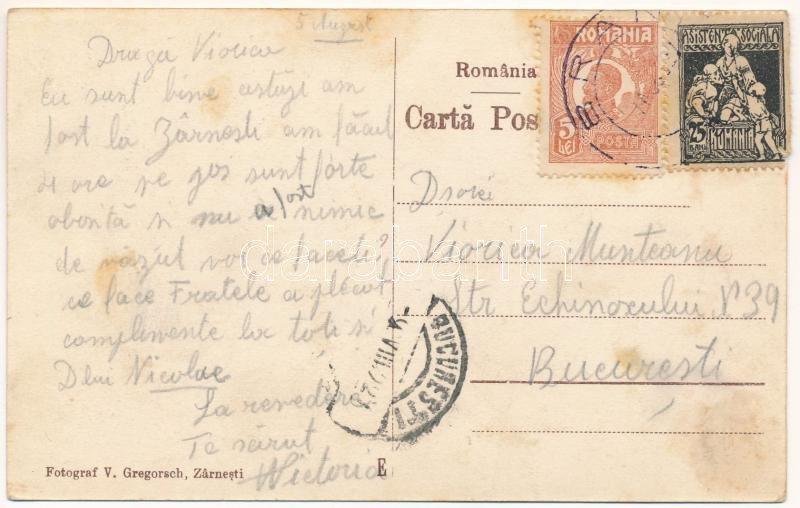 5 August
Dragă Viorica
Eu sunt bine astăzi am
fost la Zârnești am făcut
4 ore pe jos sunt forte
oborită și nu a fost nimic
de văzut voi ce faceti?
ce face Fratele a plecat
complimente la toti si
Dlui Nicolae
La revedere
Te sărut
Victoria
Fotograf V. Gregorsch, Zârnești
E
România
Cartă Pos
ROMANIA
5 LEI
POSTA
ASISTENTA SOCIALA
25 BANI
ROMANIA
BRA
BUCURESTI
VIII
Dșoarei
Viorica Munteanu
Str Echinoxului N 39
București
darabanth